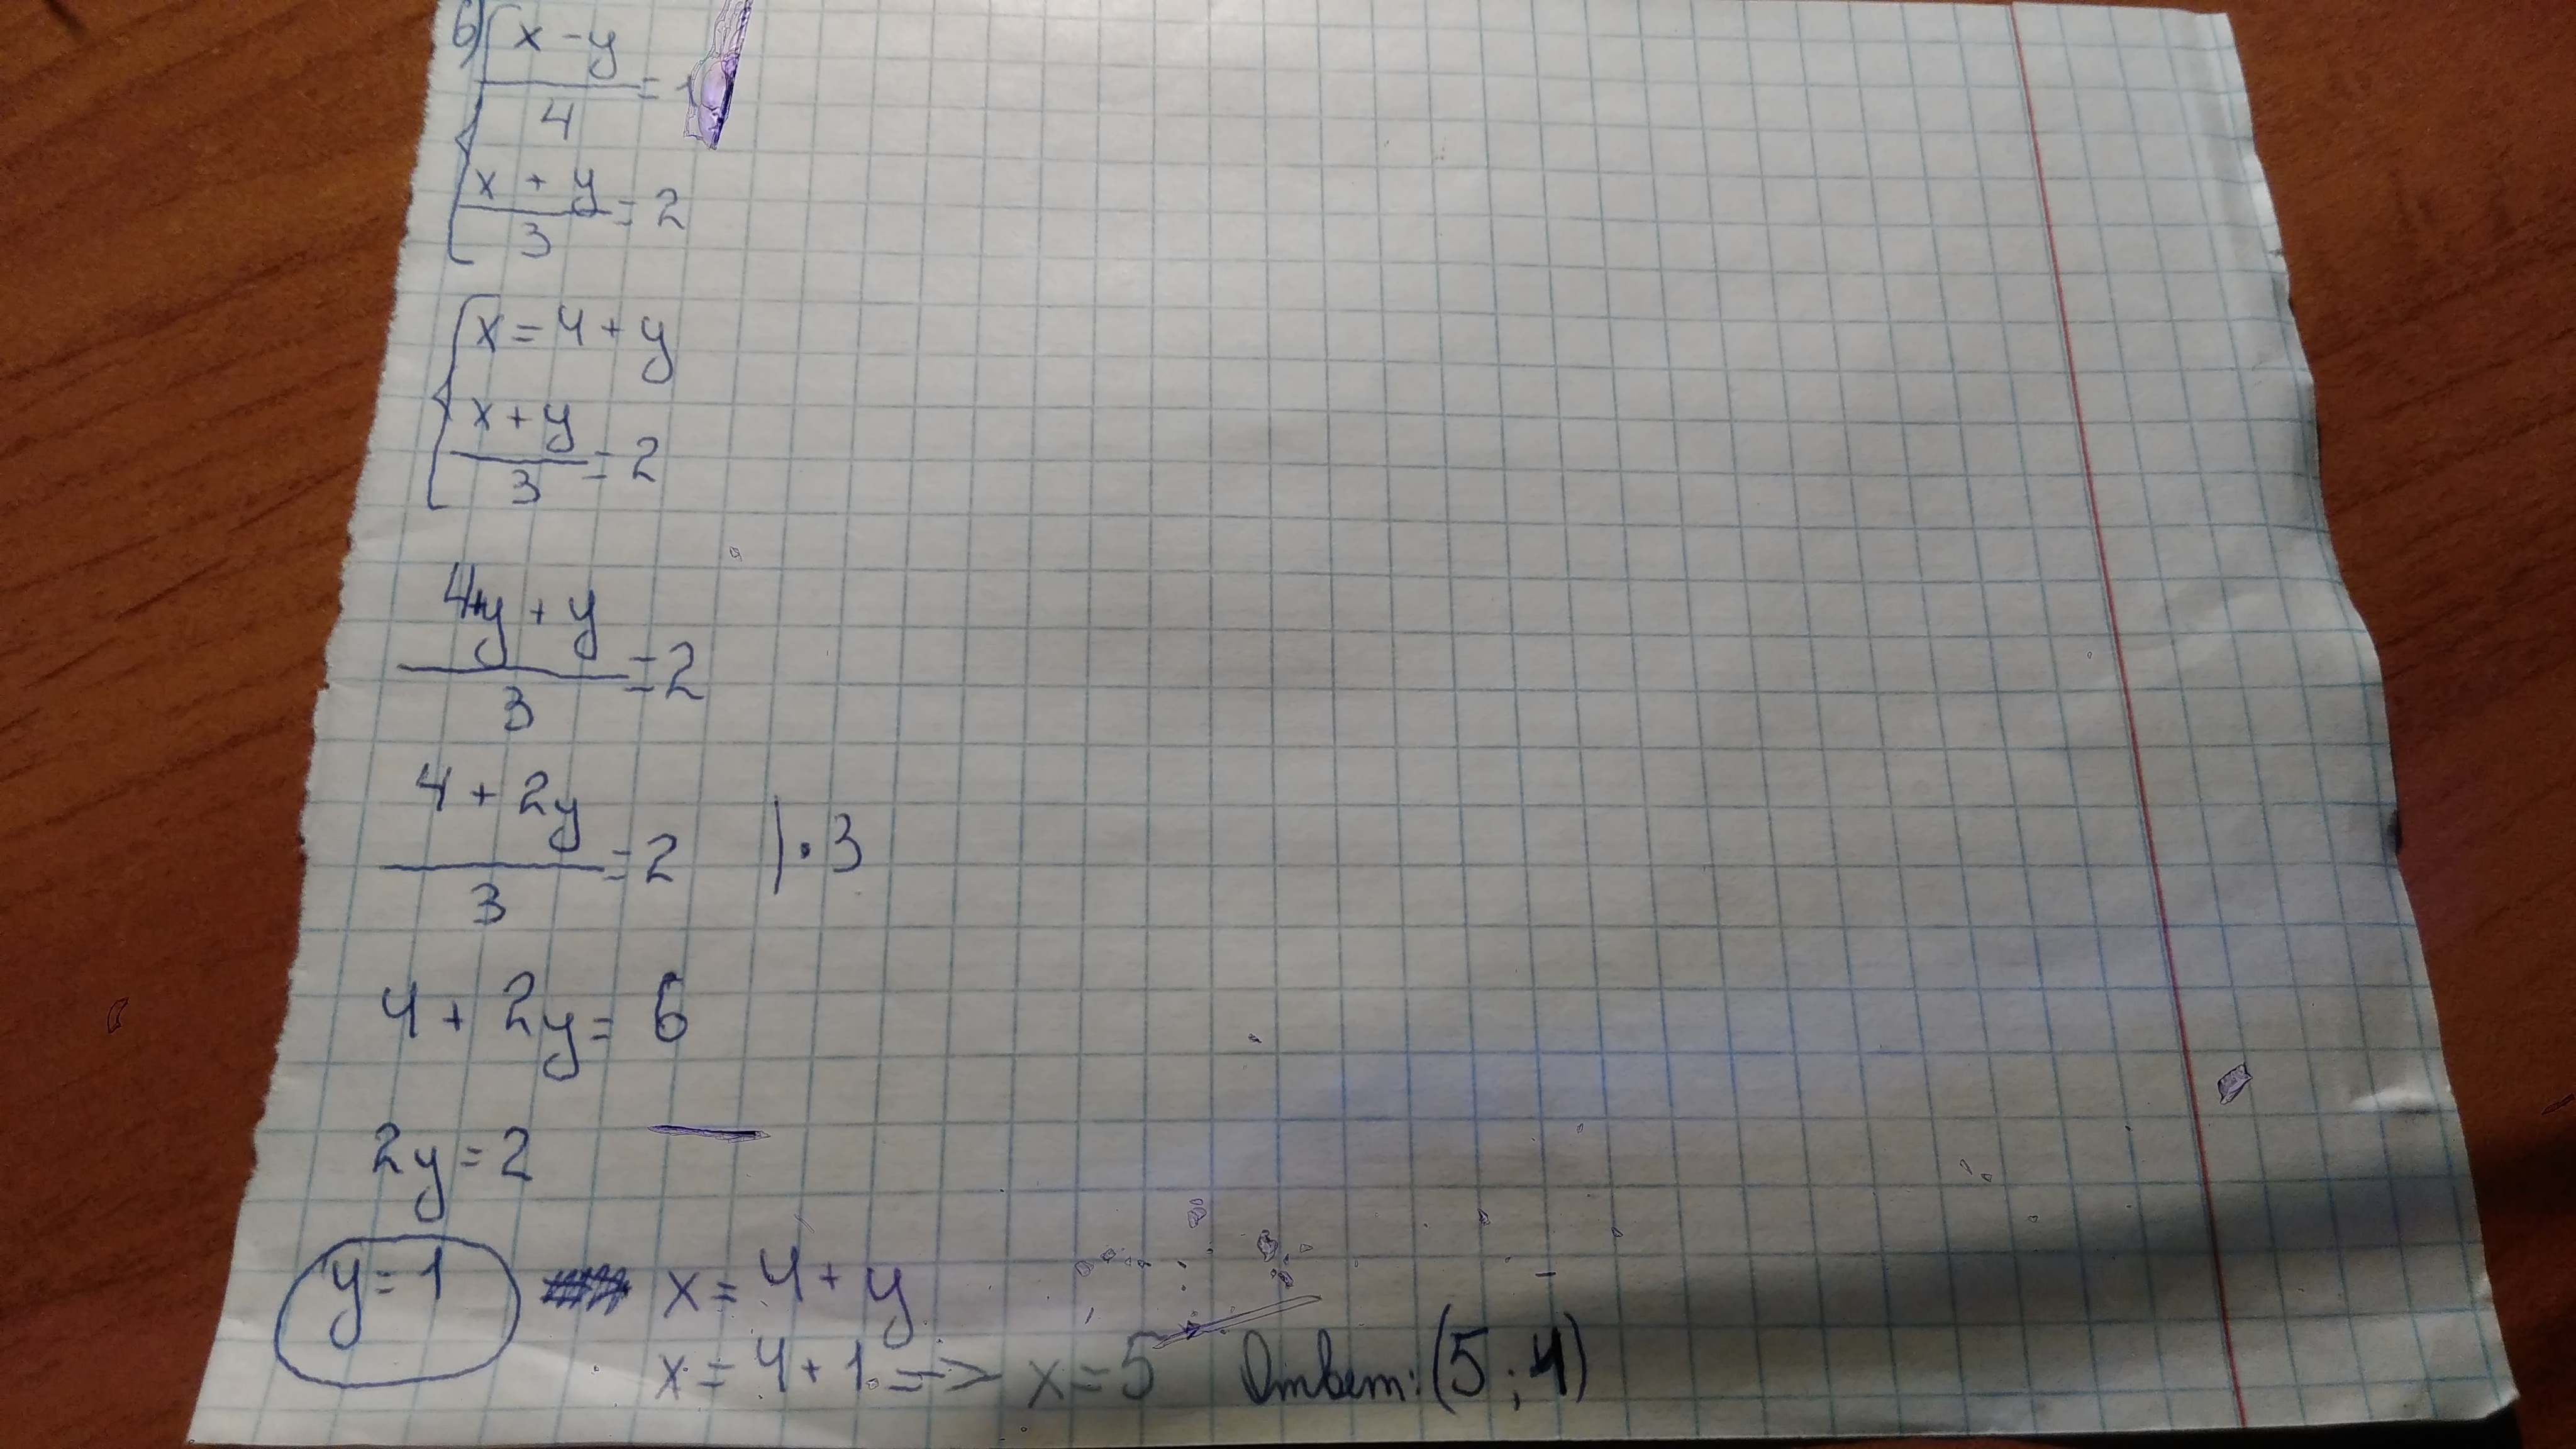 б) { x - y / 4 = 1
x + y / 3 = 2
{ x = 4 + y
x + y / 3 = 2
4+y + y / 3 = 2
4 + 2y / 3 = 2 | · 3
4 + 2y = 6
2y = 2
y = 1 x = 4 + y
x = 4 + 1 => x = 5 Ответ: (5 ; 4)